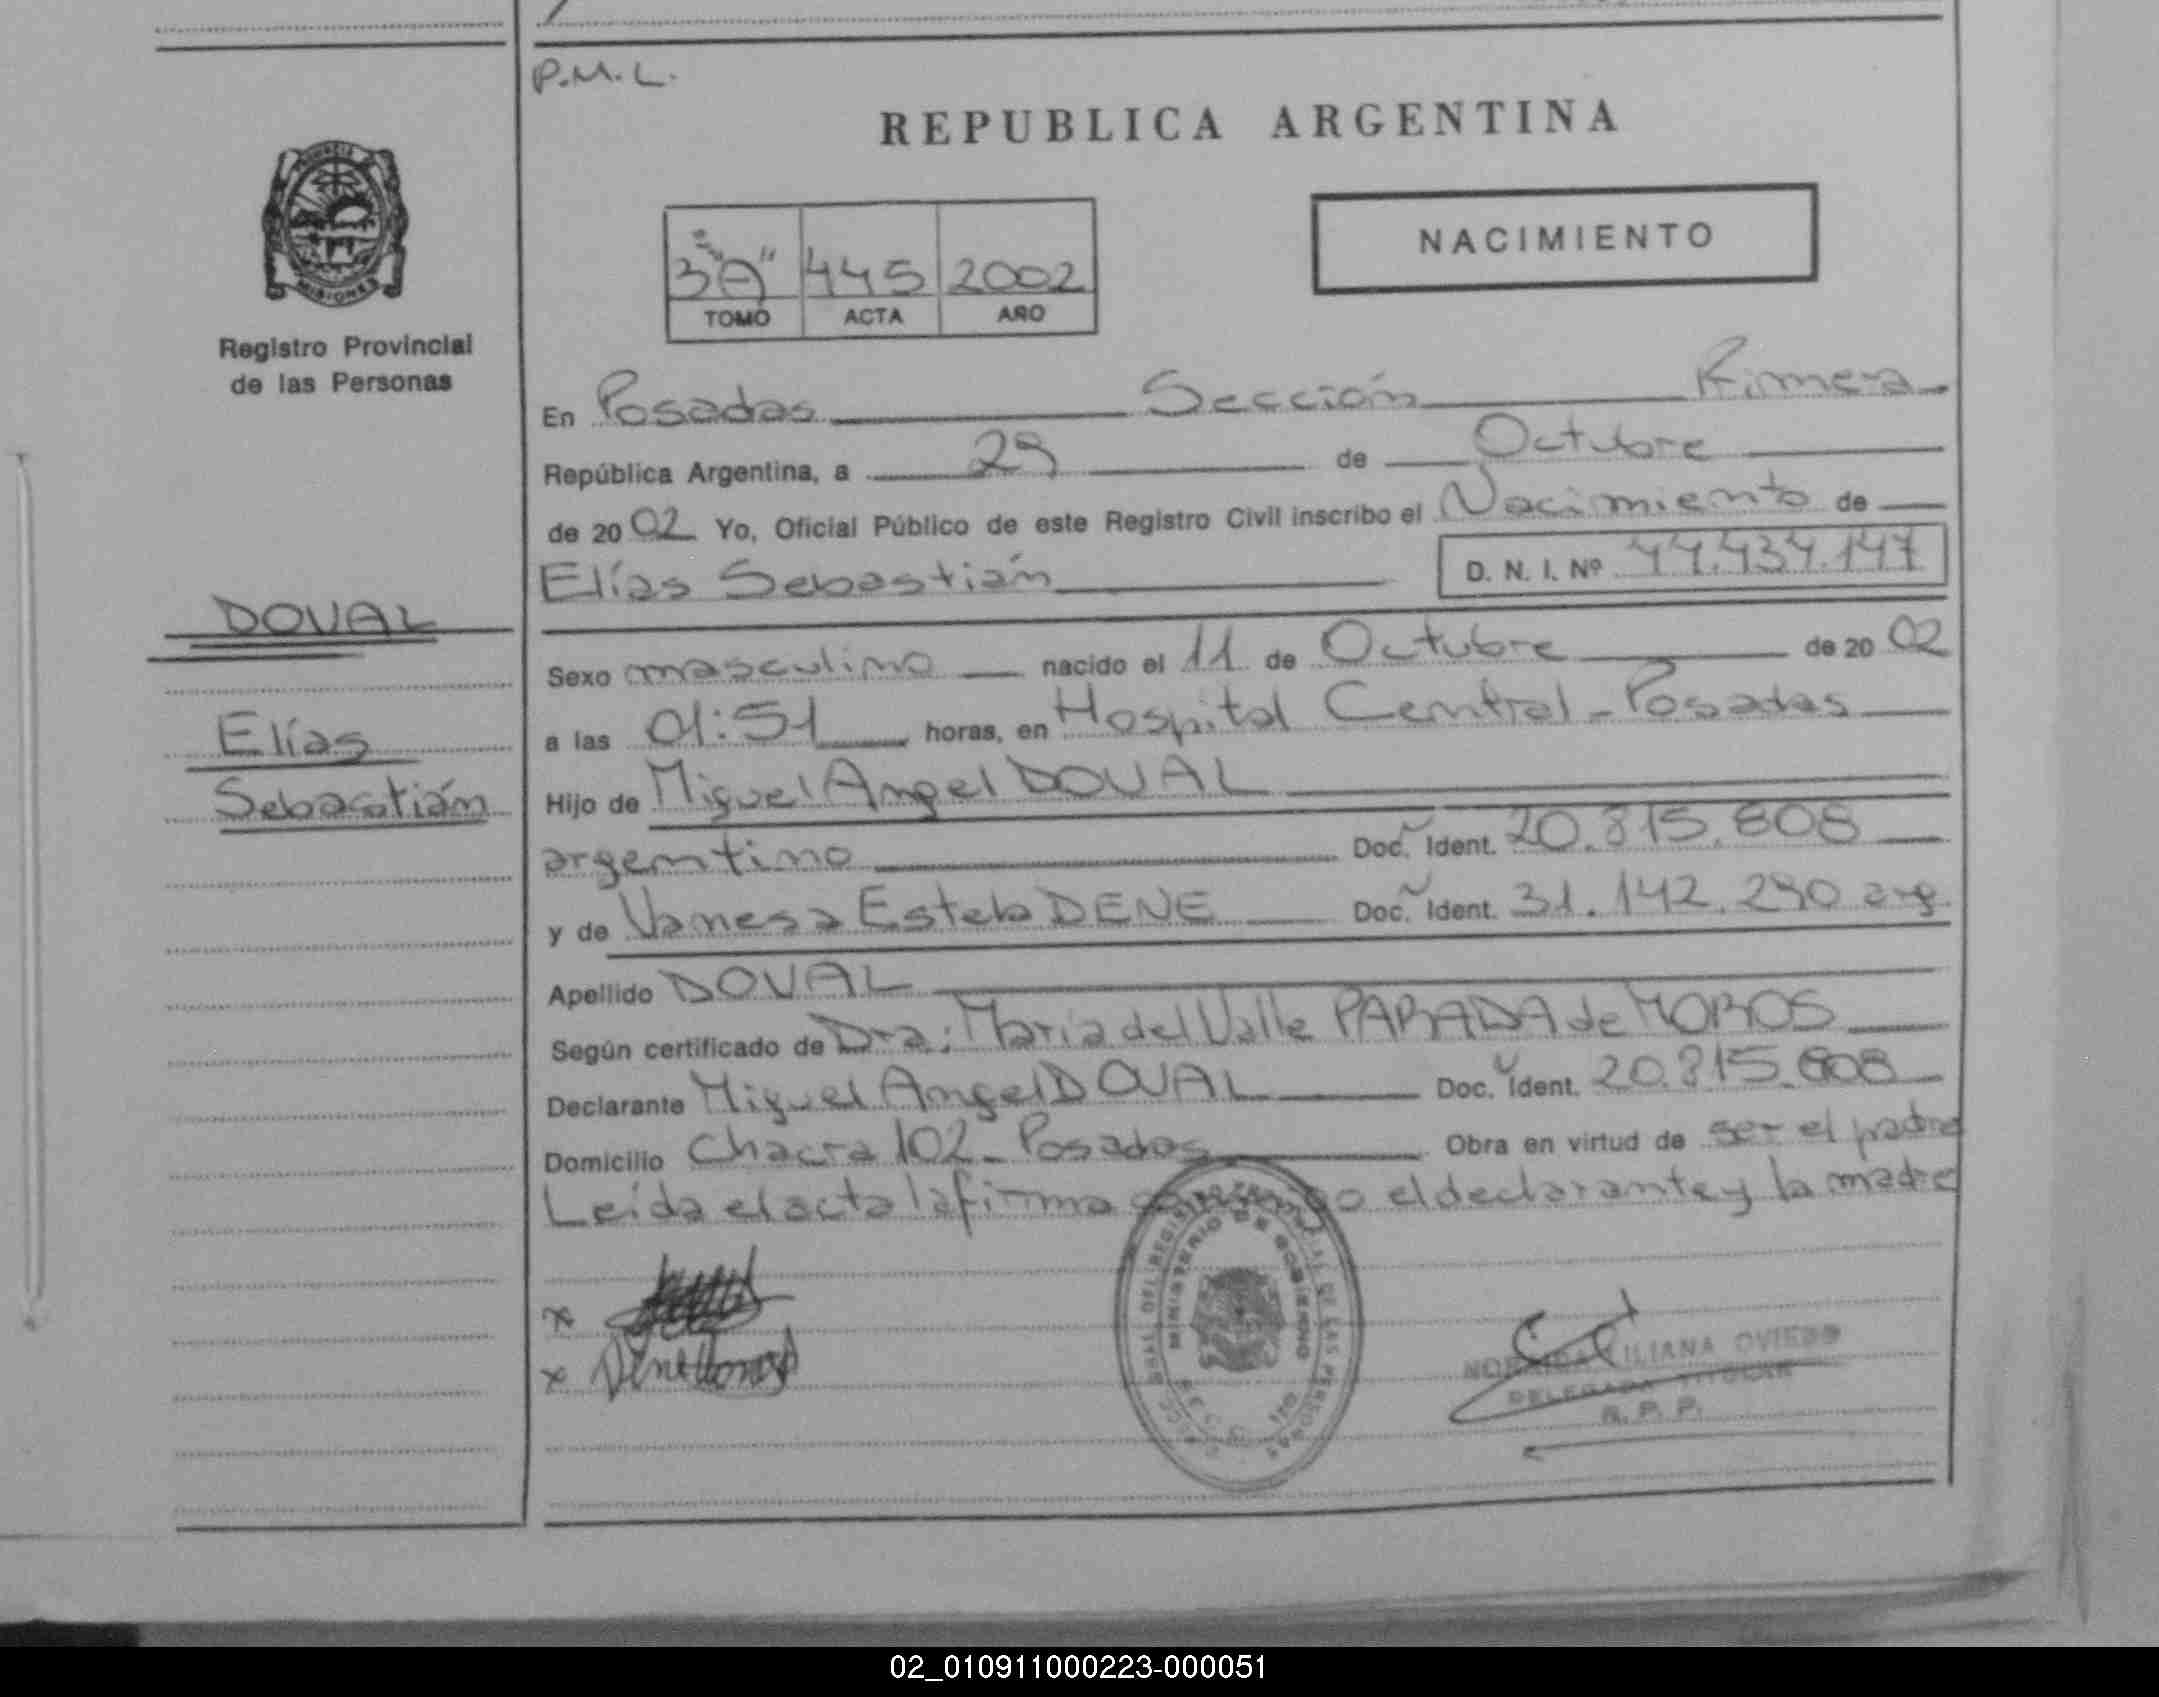 P.M.L.
REPUBLICA ARGENTINA
NACIMIENTO
3"A" 445 2002
TOMO ACTA AÑO
MISIONES
Registro Provincial
de las Personas
En Posadas Sección Primera
República Argentina, a 29 de Octubre
de 2002 Yo, Oficial Público de este Registro Civil inscribo el Nacimiento de
Elías Sebastián D. N. I. Nº 44.434.147
DOVAL
Elías
Sebastián
Sexo masculino nacido el 11 de Octubre de 20 02
a las 01:51 horas, en Hospital Central - Posadas
Hijo de Miguel Angel DOVAL
argentino Doc. Ident. 20.815.808
y de Vanesa Estela DENE Doc. Ident. 31.142.290 arg
Apellido DOVAL
Según certificado de Dra: María del Valle PARADA de MOROS
Declarante Miguel Angel DOVAL Doc. Ident. 20.815.808
Domicilio Chacra 102 - Posadas Obra en virtud de ser el padre
Leída el acta la firma conmigo el declarante y la madre
x
x Dene Vanesa
MINISTERIO DE GOBIERNO
LILIANA OVIEDO
DELEGADA TITULAR
R. P. P.
02_010911000223-000051